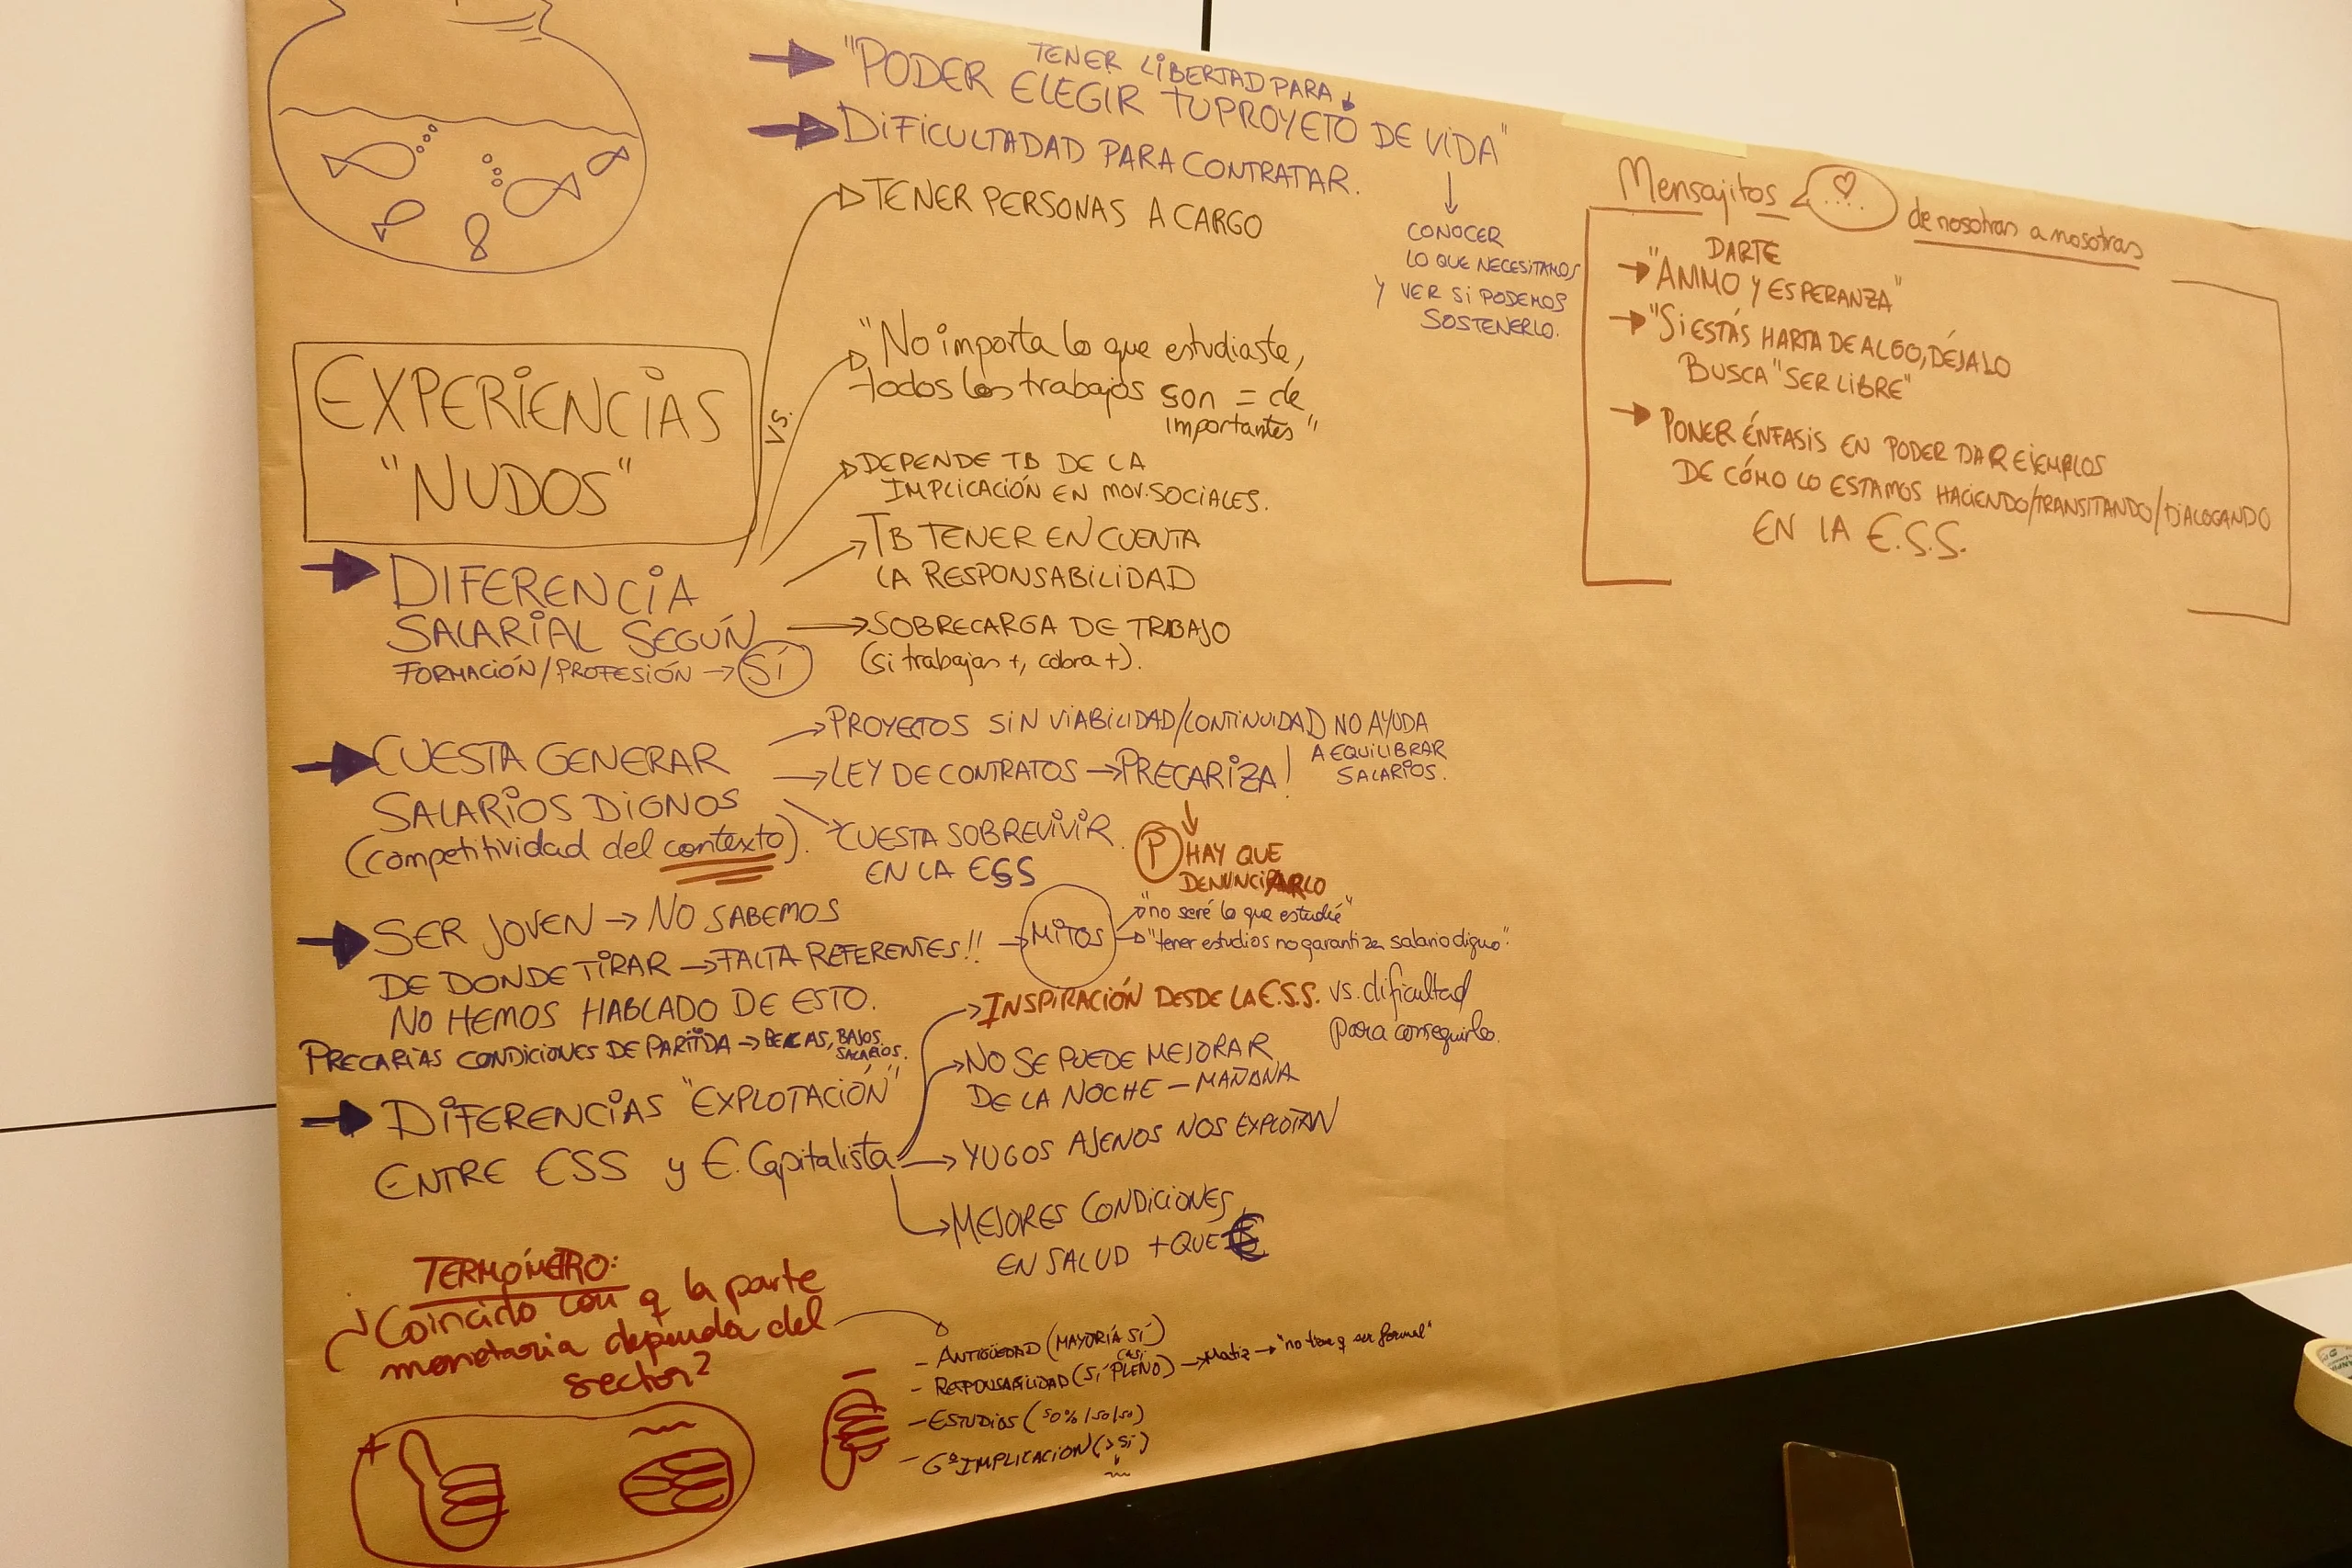 TENER LIBERTAD PARA
"PODER ELEGIR TU PROYETO DE VIDA"
DIFICULTADAD PARA CONTRATAR.
CONOCER
LO QUE NECESITAMOS
Y VER SI PODEMOS
SOSTENERLO.
EXPERIENCIAS
"NUDOS"
DIFERENCIA
SALARIAL SEGÚN
FORMACIÓN/PROFESIÓN → SÍ
TENER PERSONAS A CARGO
VS.
"No importa lo que estudiaste,
todos los trabajos son = de
importantes"
DEPENDE TB DE LA
IMPLICACIÓN EN MOV. SOCIALES.
TB TENER EN CUENTA
LA RESPONSABILIDAD
SOBRECARGA DE TRABAJO
(si trabajas +, cobra +).
CUESTA GENERAR
SALARIOS DIGNOS
(competitividad del contexto).
PROYECTOS SIN VIABILIDAD/CONTINUIDAD NO AYUDA
A EQUILIBRAR
SALARIOS.
LEY DE CONTRATOS → PRECARIZA!
P HAY QUE
DENUNCIARLO
CUESTA SOBREVIVIR
EN LA ESS
SER JOVEN → NO SABEMOS
DE DONDE TIRAR → FALTA REFERENTES!! → MITOS
"no seré lo que estudié"
"tener estudios no garantiza salario digno".
NO HEMOS HABLADO DE ESTO.
PRECARIAS CONDICIONES DE PARTIDA → BECAS, BAJOS
SALARIOS.
DIFERENCIAS "EXPLOTACIÓN"
ENTRE ESS y E. Capitalista
INSPIRACIÓN DESDE LA E.S.S. vs. dificultad
para conseguirlo.
NO SE PUEDE MEJORAR
DE LA NOCHE – MAÑANA
YUGOS AJENOS NOS EXPLOTAN
MEJORES CONDICIONES
EN SALUD + QUE €
TERMÓMETRO:
Coincido con q la parte
monetaria dependa del
sector?
- ANTIGÜEDAD (MAYORÍA SÍ)
CASI
- RESPONSABILIDAD (SÍ PLENO) → Matiz → "no tiene q ser formal"
- ESTUDIOS (50%/50/50)
- Gº IMPLICACION (> SI)
+
Mensajitos
de nosotras a nosotras
DARTE
"ANIMO Y ESPERANZA"
"SI ESTÁS HARTA DE ALGO, DÉJALO
BUSCA "SER LIBRE"
PONER ÉNFASIS EN PODER DAR EJEMPLOS
DE CÓMO LO ESTAMOS HACIENDO/TRANSITANDO/DIALOGANDO
EN LA E.S.S.